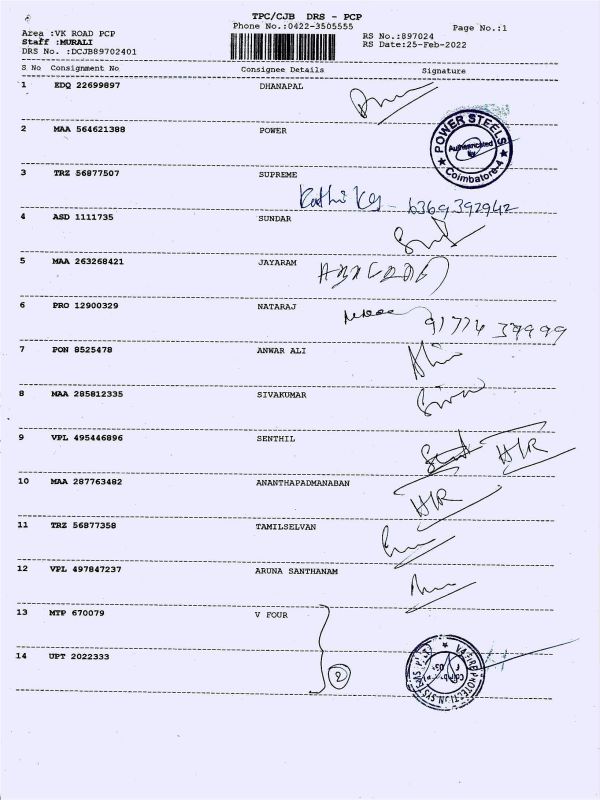 TPC/CJB DRS - PCP
Phone No.:0422-3505555
Page No.:1
Area :VK ROAD PCP
Staff :MURALI
DRS No. :DCJB89702401
RS No.:897024
RS Date:25-Feb-2022
S No Consignment No Consignee Details Signature
1 EDQ 22699897 DHANAPAL
2 MAA 564621388 POWER
POWER STEELS
Authenticated
by
Coimbatore-4
3 TRZ 56877507 SUPREME
6369392942
4 ASD 1111735 SUNDAR
5 MAA 263268421 JAYARAM
6 PRO 12900329 NATARAJ
91774 39999
7 PON 8525478 ANWAR ALI
8 MAA 285812335 SIVAKUMAR
9 VPL 495446896 SENTHIL
H/R
10 MAA 287763482 ANANTHAPADMANABAN
H/R
11 TRZ 56877358 TAMILSELVAN
12 VPL 497847237 ARUNA SANTHANAM
13 MTP 670079 V FOUR
14 UPT 2022333
2